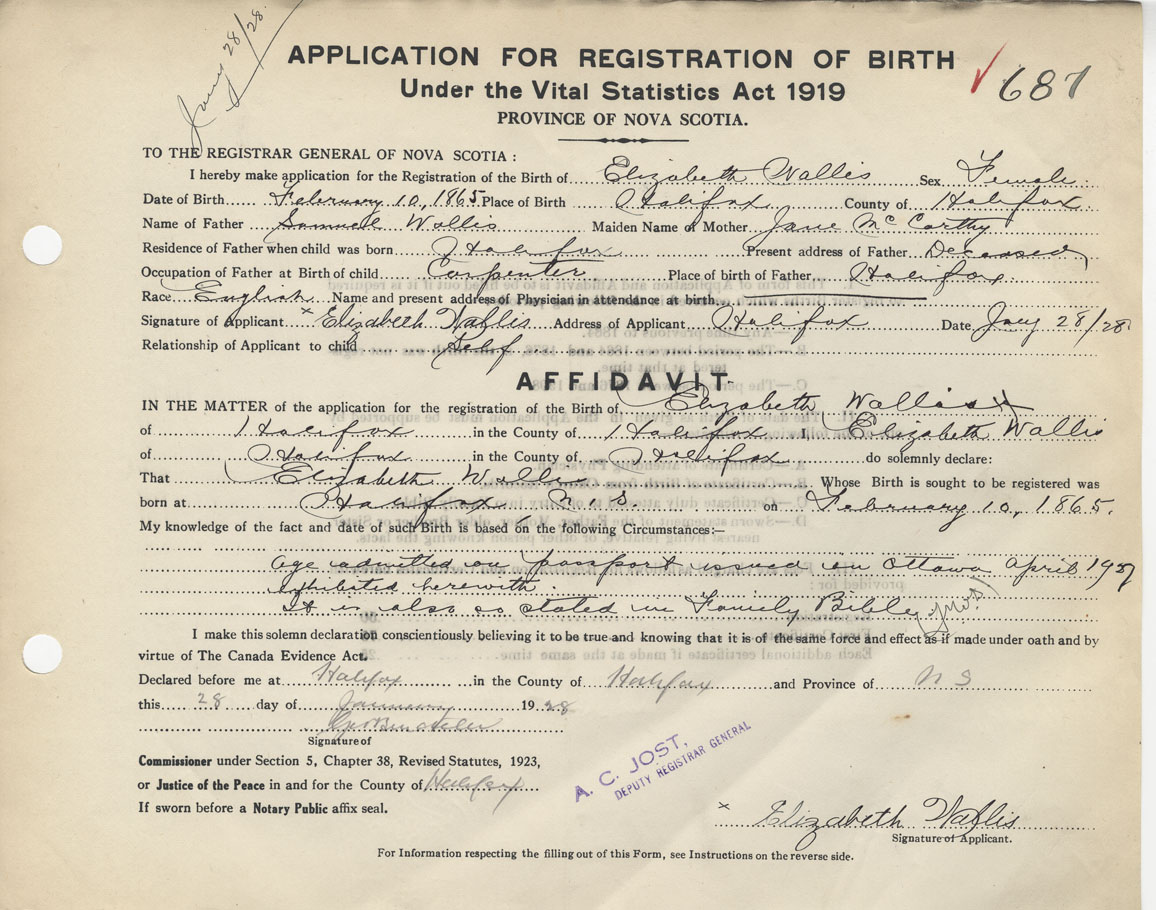 Jany 28/28
APPLICATION FOR REGISTRATION OF BIRTH
687
Under the Vital Statistics Act 1919
PROVINCE OF NOVA SCOTIA.
TO THE REGISTRAR GENERAL OF NOVA SCOTIA :
I hereby make application for the Registration of the Birth of Elizabeth Wallis Sex Female
Date of Birth February 10, 1865. Place of Birth Halifax County of Halifax
Name of Father Samuel Wallis Maiden Name of Mother Jane McCarthy
Residence of Father when child was born Halifax Present address of Father Deceased
Occupation of Father at Birth of child Carpenter Place of birth of Father Halifax
Race English Name and present address of Physician in attendance at birth
Signature of Applicant x Elizabeth Wallis Address of Applicant Halifax Date Jany 28/28
Relationship of Applicant to child Self
AFFIDAVIT
IN THE MATTER of the application for the registration of the Birth of Elizabeth Wallis
of Halifax in the County of Halifax I Elizabeth Wallis
of Halifax in the County of Halifax do solemnly declare:
That Elizabeth Wallis Whose Birth is sought to be registered was
born at Halifax N. S. on February 10, 1865.
My knowledge of the fact and date of such Birth is based on the following Circumstances:—
age admitted on passport issued in Ottawa April 1927
exhibited herewith
It is also so stated in Family Bible
I make this solemn declaration conscientiously believing it to be true and knowing that it is of the same force and effect as if made under oath and by
virtue of The Canada Evidence Act.
Declared before me at Halifax in the County of Halifax and Province of N S
this 28 day of January 1928
Signature of
Commissioner under Section 5, Chapter 38, Revised Statutes, 1923,
or Justice of the Peace in and for the County of Halifax
If sworn before a Notary Public affix seal.
A. C. JOST,
DEPUTY REGISTRAR GENERAL
x Elizabeth Wallis
Signature of Applicant.
For Information respecting the filling out of this Form, see Instructions on the reverse side.